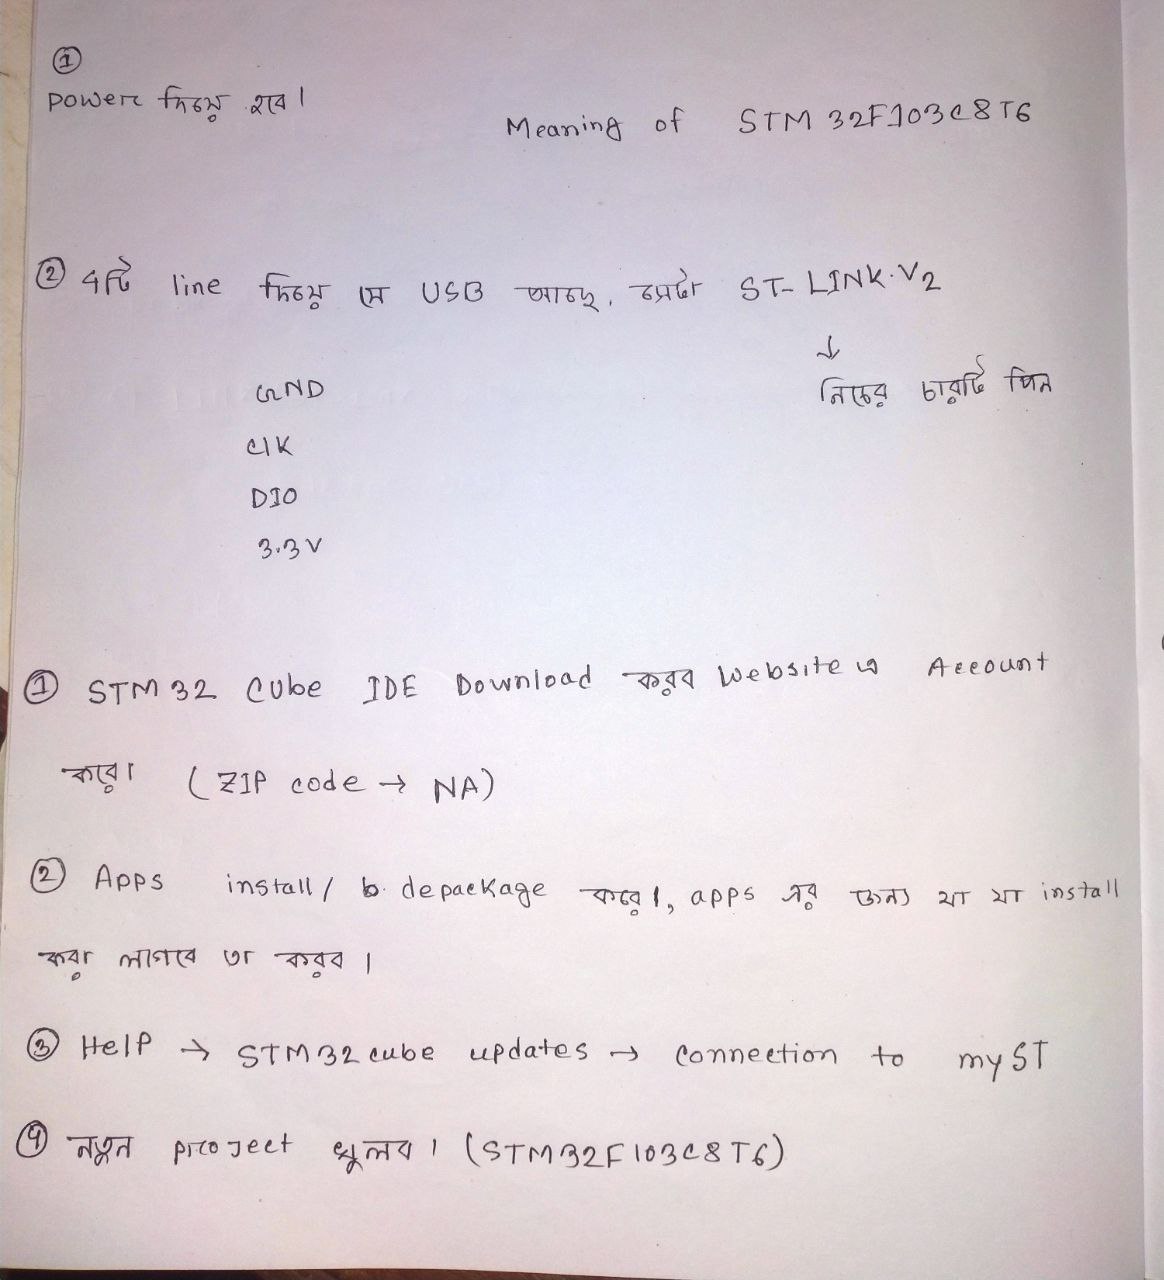 ①
Power দিয়ে হবে।
Meaning of STM 32F103C8T6
② ৪টি line দিয়ে যে USB আছে, সেটা ST-LINK.V2
↓
নিচের চারটি পিন
GND
ClK
DIO
3.3V
① STM 32 Cube IDE Download করব Website এ Account
করে। (ZIP code → NA)
② Apps install / depackage করে।, apps এর জন্য যা যা install
করা লাগবে তা করব।
③ Help → STM32cube updates → Connection to myST
④ নতুন project খুলব। (STM32F103C8T6)